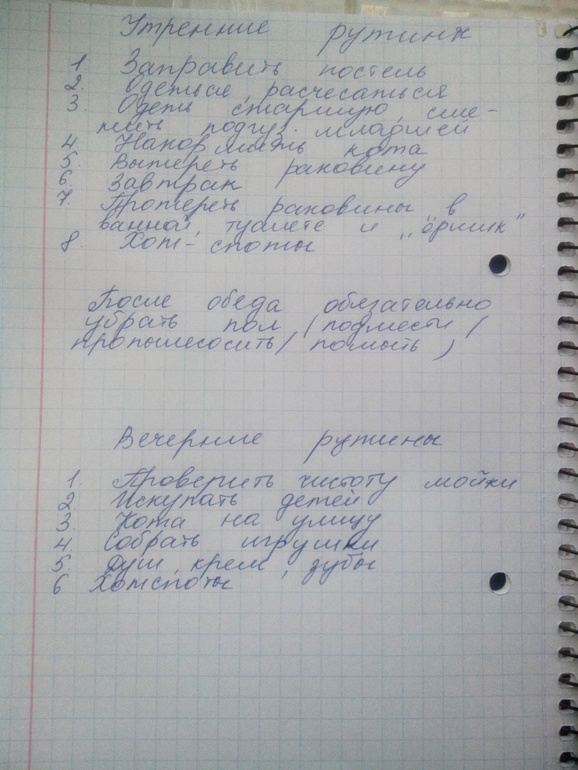 Утренние рутины
1. Заправить постель
2. Одеться, расчесаться
3. Одеть старшую, сме-
нить подгуз. младшей
4. Накормить кота
5. Вытереть раковину
6. Завтрак
7 Протереть раковины в
ванной, туалете и „ёршик"
8. Хот-споты
После обеда обязательно
убрать пол (подмести/
пропылесосить/помыть)
Вечерние рутины
1. Проверить чистоту мойки
2. Искупать детей
3. Кота на улицу
4. Собрать игрушки
5. Душ, крем, зубы
6 Хотспоты